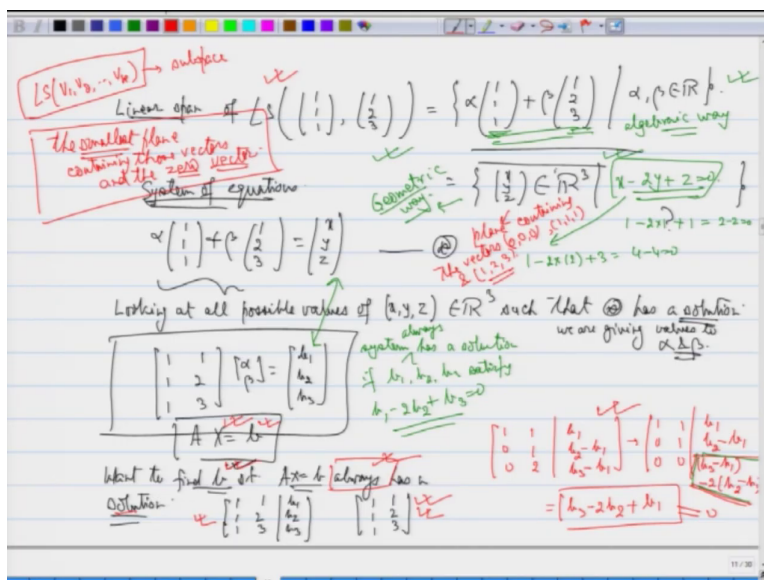 LS(V₁, V₂, ..., Vₖ) → subspace
Linear span of LS((1 1 1), (1 2 3)) = { α(1 1 1) + β(1 2 3) | α, β ∈ ℝ }.
algebraic way
the smallest plane
containing those vectors
and the zero vector.
Geometric way:
= { (x y z) ∈ ℝ³ | x - 2y + z = 0 }
1 - 2×1 + 1 = 2-2=0
1 - 2×(2) + 3 = 4-4=0
plane containing
the vectors (0,0,0), (1,1,1)
& (1,2,3)
System of equations
α(1 1 1) + β(1 2 3) = (x y z) — ⊛
Looking at all possible values of (x,y,z) ∈ ℝ³ such that ⊛ has a solution.
we are giving values to
α & β.
[1 1; 1 2; 1 3] [α β] = [b₁ b₂ b₃]
always
system has a solution
if b₁, b₂, b₃ satisfy
b₁ - 2b₂ + b₃ = 0
A X = b
Want to find b st AX = b always has a
solution
[1 1 | b₁; 1 2 | b₂; 1 3 | b₃] [1 1; 1 2; 1 3]
[1 1 | b₁; 0 1 | b₂-b₁; 0 2 | b₃-b₁] → [1 1 | b₁; 0 1 | b₂-b₁; 0 0 | (b₃-b₁) -2(b₂-b₁)]
= [b₃ - 2b₂ + b₁] = 0
11 / 30